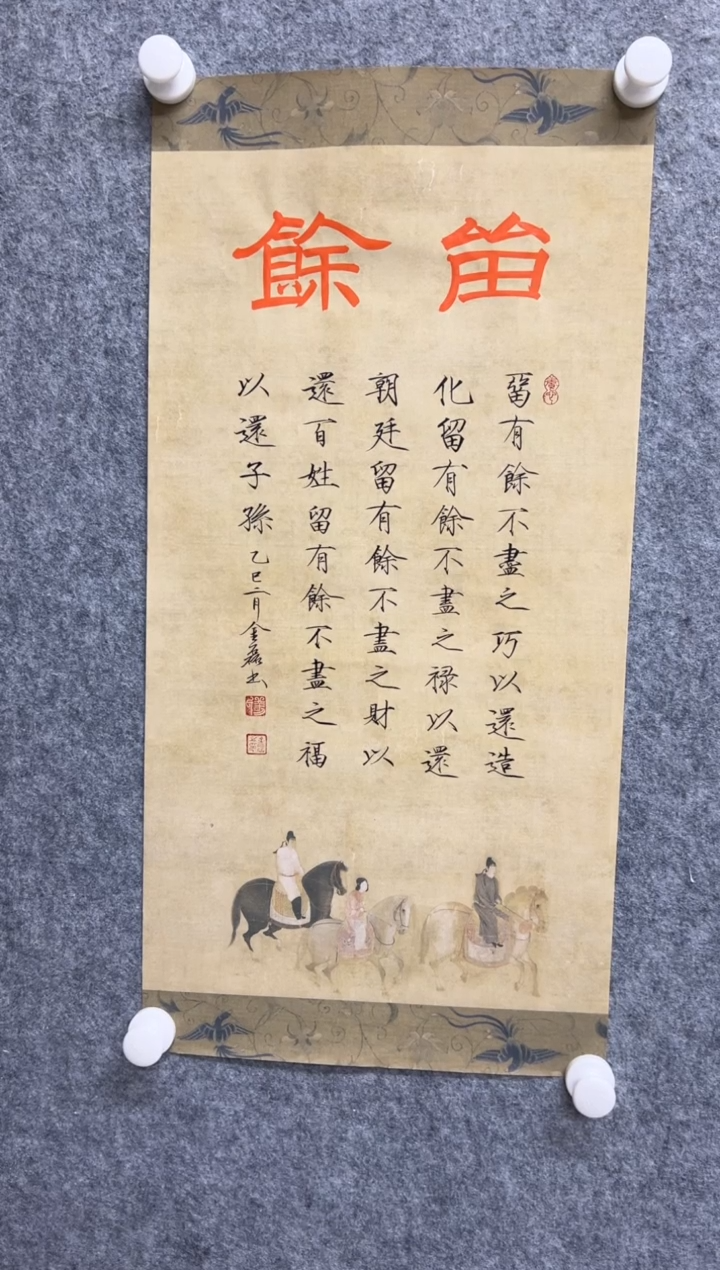 留餘
留有餘不盡之巧以還造
化留有餘不盡之禄以還
朝廷留有餘不盡之財以
還百姓留有餘不盡之福
以還子孫
乙巳二月金磊书